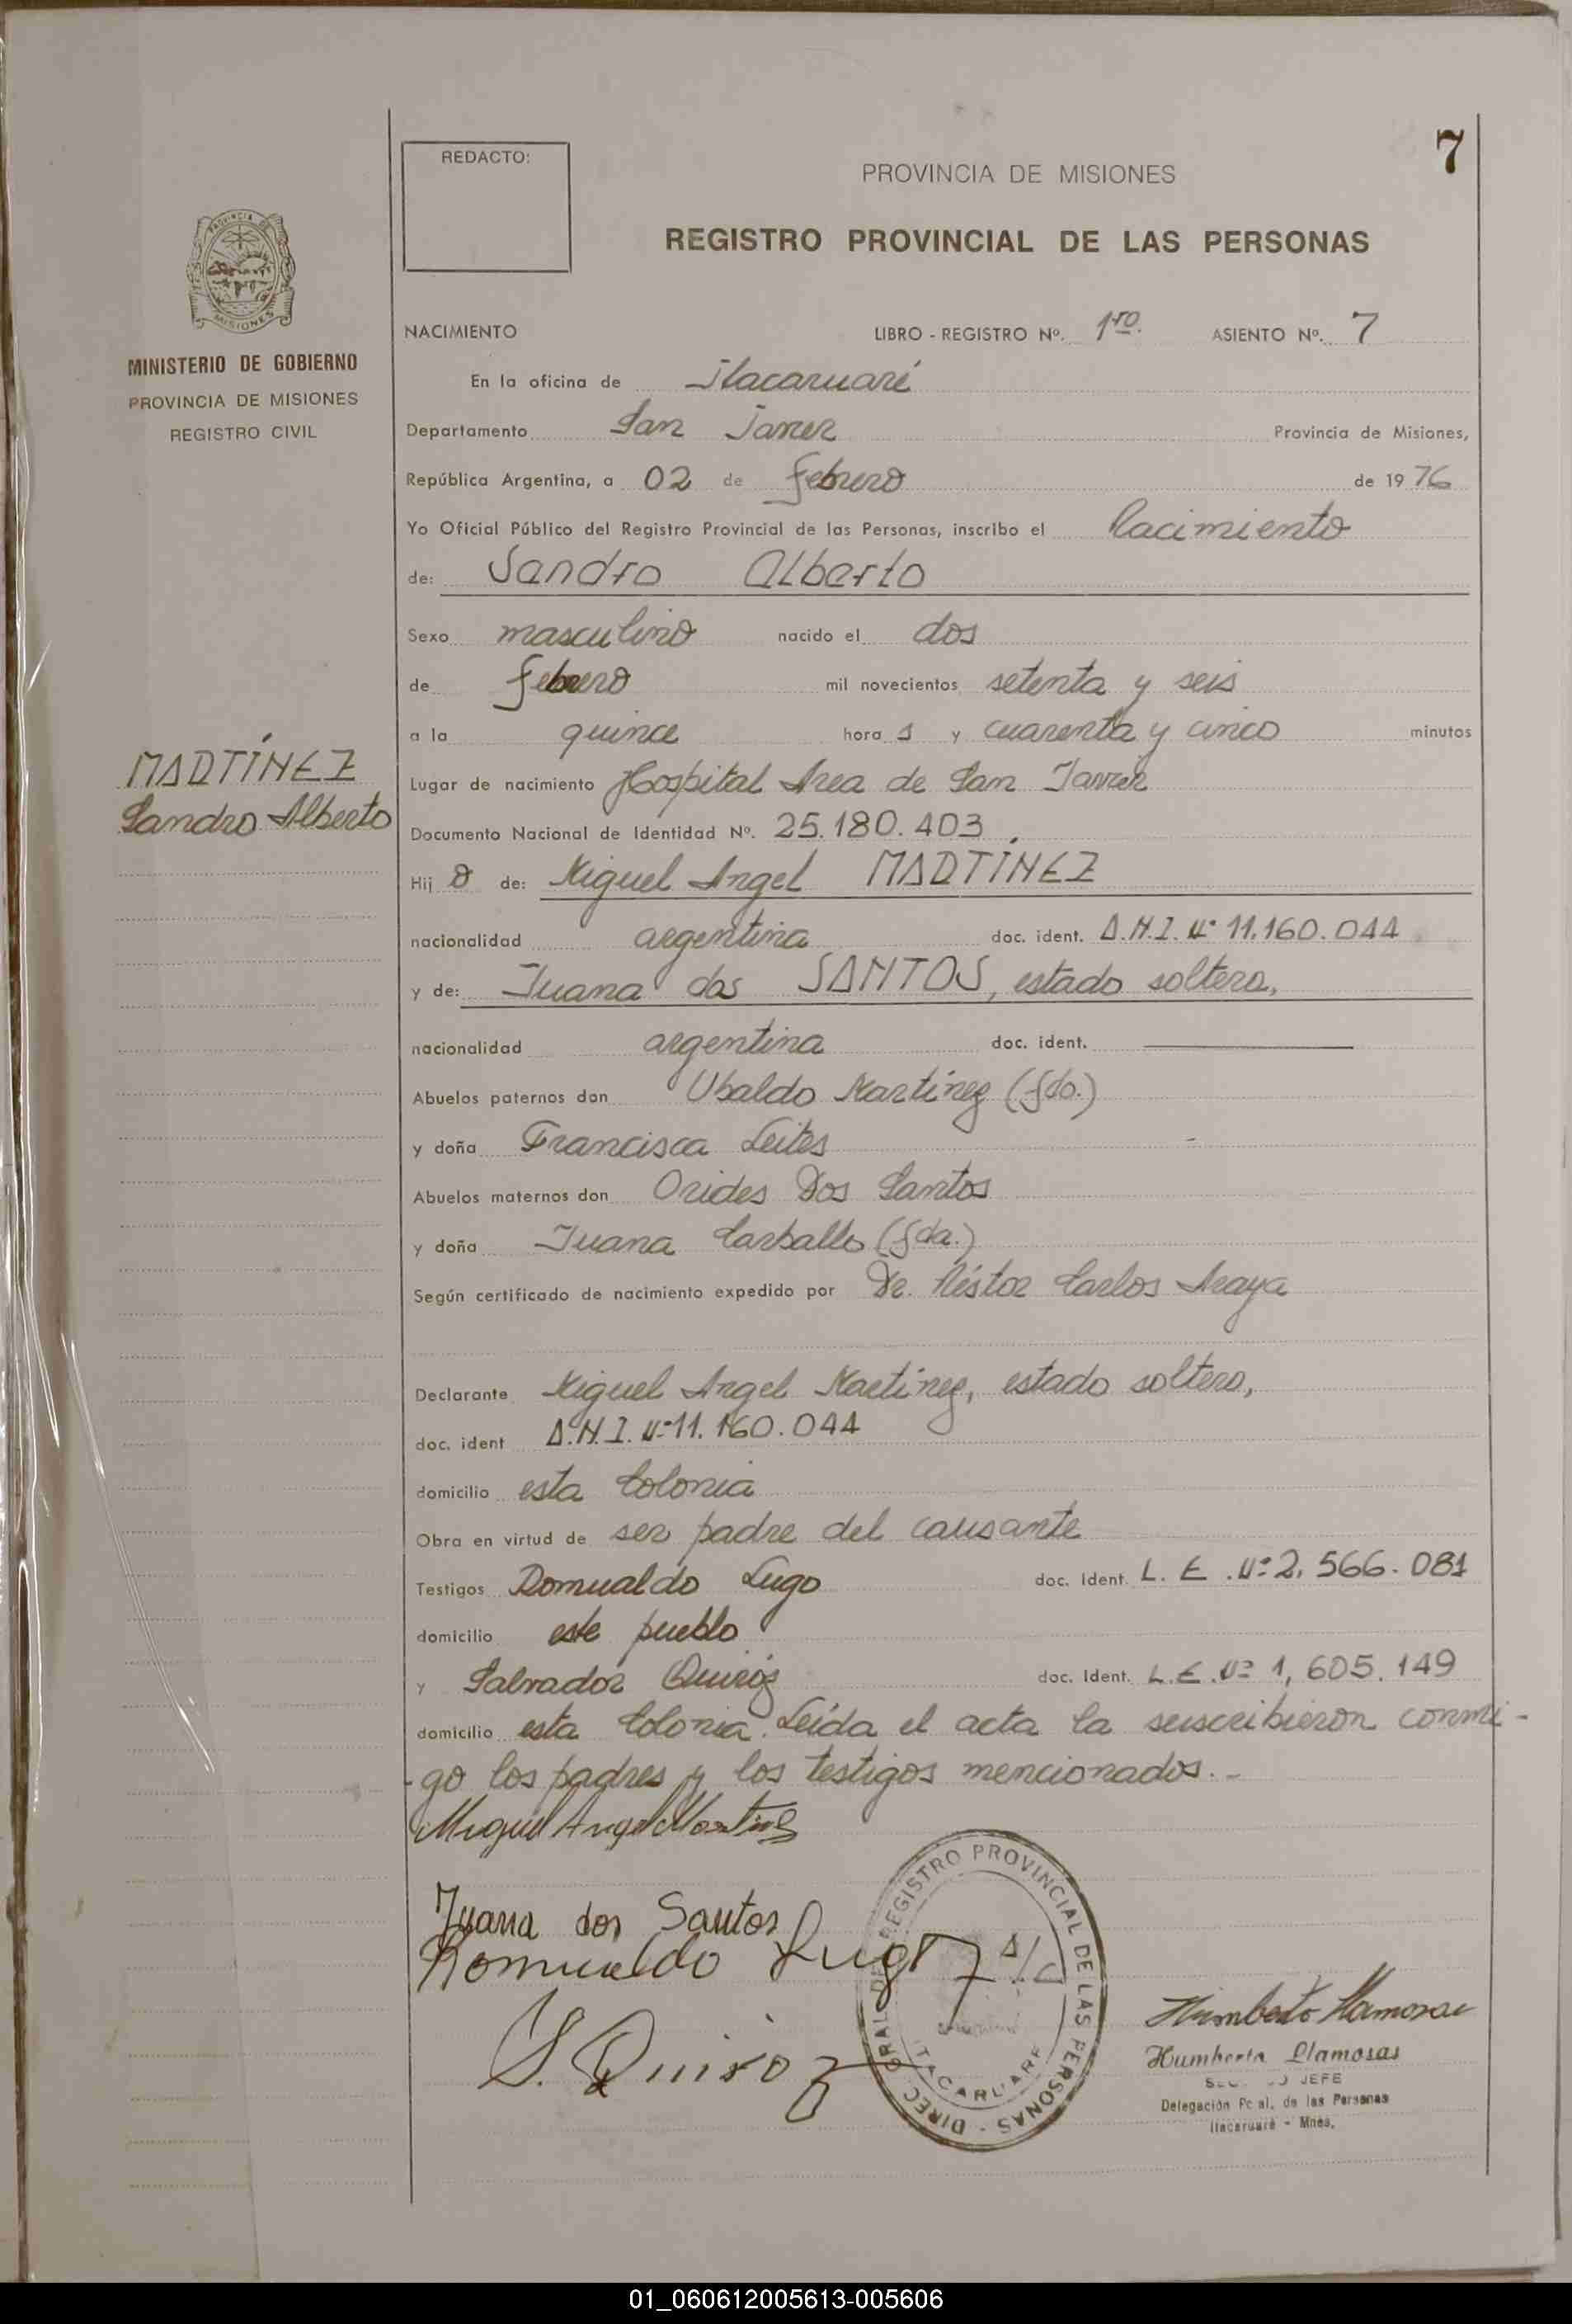 7
REDACTO:
PROVINCIA DE MISIONES
REGISTRO PROVINCIAL DE LAS PERSONAS
PROVINCIA DE
MISIONES
MINISTERIO DE GOBIERNO
PROVINCIA DE MISIONES
REGISTRO CIVIL
NACIMIENTO LIBRO - REGISTRO Nº. 1ro. ASIENTO Nº. 7
En la oficina de Itacaruaré
Departamento San Javier Provincia de Misiones,
República Argentina, a 02 de febrero de 1976
Yo Oficial Público del Registro Provincial de las Personas, inscribo el Nacimiento
de: Sandro Alberto
Sexo masculino nacido el dos
de febrero mil novecientos setenta y seis
a la quince hora s y cuarenta y cinco minutos
MARTÍNEZ
Sandro Alberto
Lugar de nacimiento Hospital Area de San Javier
Documento Nacional de Identidad Nº. 25.180.403
Hij o de: Miguel Angel MARTÍNEZ
nacionalidad argentina doc. ident. D.N.I. Nº 11.160.044
y de: Juana dos SANTOS, estado soltera,
nacionalidad argentina doc. ident.
Abuelos paternos don Ubaldo Martínez (fdo.)
y doña Francisca Leites
Abuelos maternos don Orides Dos Santos
y doña Juana Carballo (fda.)
Según certificado de nacimiento expedido por Dr. Néstor Carlos Araya
Declarante Miguel Angel Martínez, estado soltero,
doc. ident D.N.I. Nº 11.160.044
domicilio esta Colonia
Obra en virtud de ser padre del causante
Testigos Romualdo Lugo doc. Ident. L. E. Nº 2.566.081
domicilio este pueblo
y Salvador Quiróz doc. Ident. L.E. Nº 1,605.149
domicilio esta Colonia. Leída el acta la suscribieron conmi-
-go los padres y los testigos mencionados.-
Miguel Angel Martinez
Juana dos Santos
Romualdo Lugo
S. Quiroz
DIREC. GRAL. DEL REGISTRO PROVINCIAL DE LAS PERSONAS -
ITACARUARE
Humberto Llamosas
Humberto Llamosas
JEFE
Delegación Pcial. de las Personas
Itacaruaré - Mnes.
01_060612005613-005606